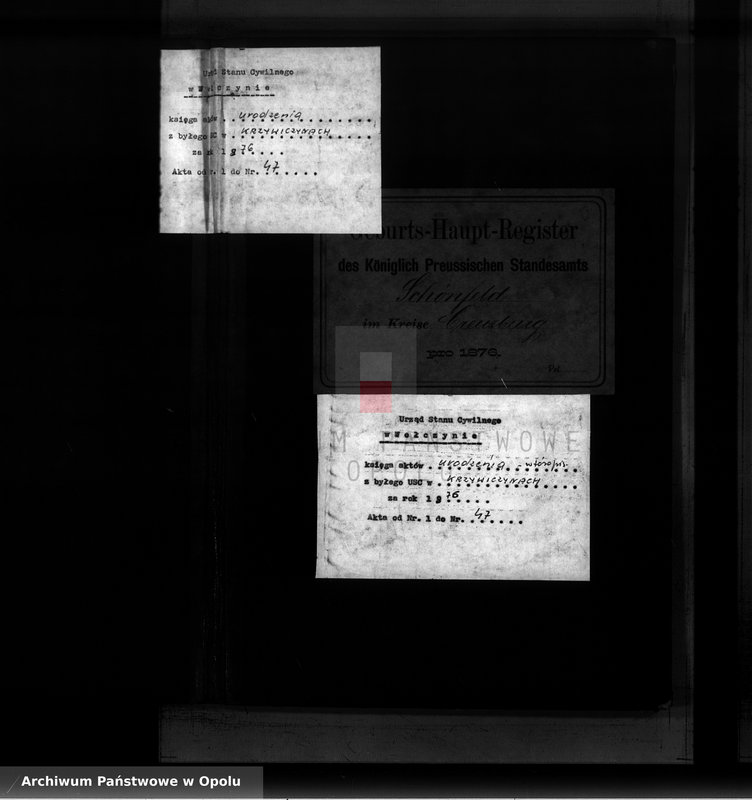 Urząd Stanu Cywilnego
w Wołczynie
księga aktów . . urodzenia
z byłego USC w . KRZYWICZYNACH
za rok 1876
Akta od Nr. 1 do Nr. 47
Geburts-Haupt-Register
des Königlich Preussischen Standesamts
Schönfeld
im Kreise Creuzburg
pro 1876.
Urząd Stanu Cywilnego
w Wołczynie
księga aktów . urodzenia - wtóropis
z byłego USC w . KRZYWICZYNACH
za rok 1876
Akta od Nr. 1 do Nr. 47
PAŃSTWOWE
Archiwum Państwowe w Opolu